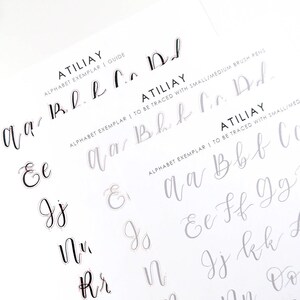 ATILIAY
ALPHABET EXEMPLAR | GUIDE
Aa Bb Cc Dd
Ee
Jj
Nn
Rr
ATILIAY
ALPHABET EXEMPLAR | TO BE TRACED WITH SMALL/MEDIUM BRUSH PENS
Aa Bb Cc Dd
E
Jj
N
ATILIAY
ALPHABET EXEMPLAR | TO BE TRACED WITH SMALL/MEDIUM
Aa Bb C
Ee Ff Gg
Jj Kk L
Nn Oo